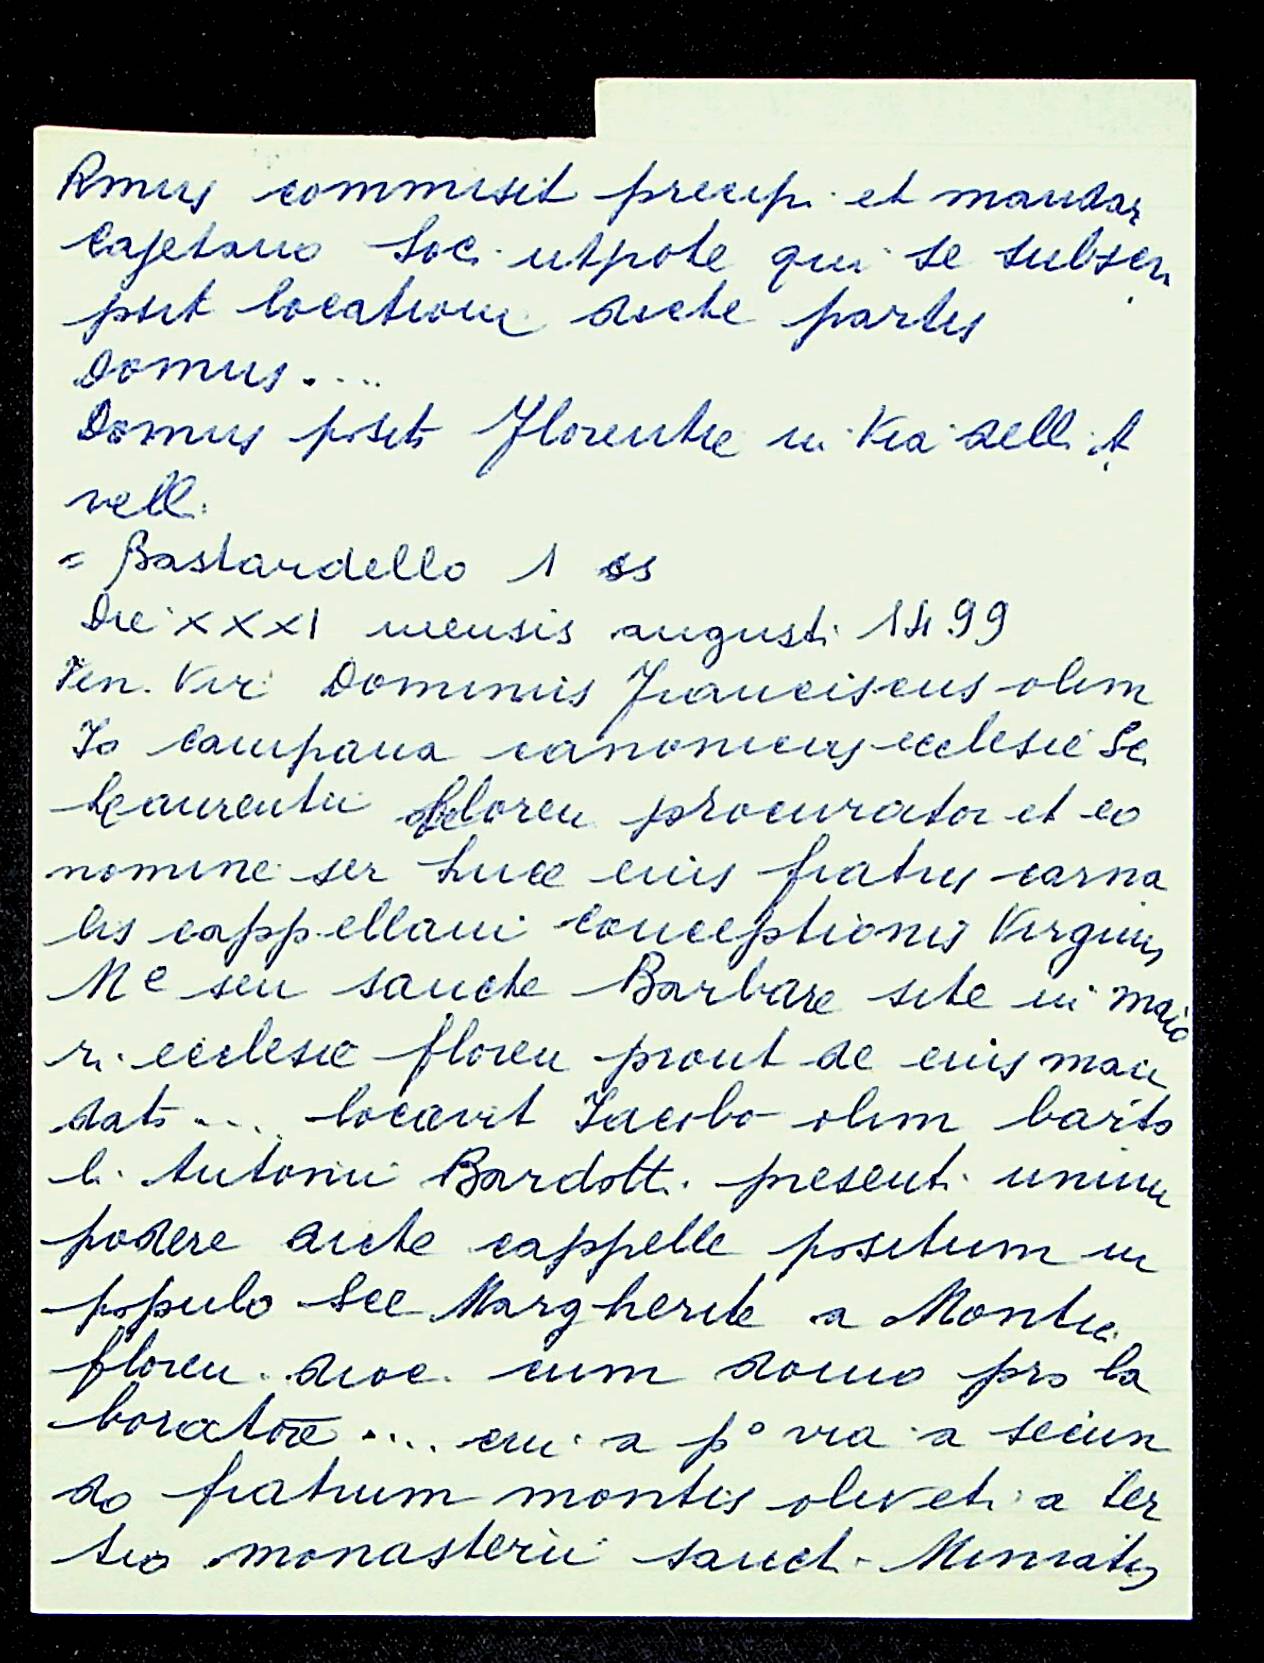 Rmus commisit precipi et mandar
Cajetano Loci utpote qui se subscri
psit locationi dicte partis
Domus....
Domus posit Florentie in Via delli A
velli
= Bastardello 1 os
Die XXXI mensis augusti 1499
Ven. Vir Dominus Franciscus olim
Io Campana canonicus ecclesie Sc
Laurentii floren procurator et eo
nomine ser Luce eius fratris carna
lis cappellani Conceptionis Virginis
Me seu sancte Barbare site in maio
ri ecclesie floren prout de eius man
dato .... locavit Iacobo olim barto
li Antonii Bardotti presenti unum
podere dicte cappelle positum in
populo See Margherite a Montici
floren. dioc. cum domo pro la
boratore .... cui a p° via a secun
do fratrum montis oliveti a ter
tio monasterii sancti Miniatis